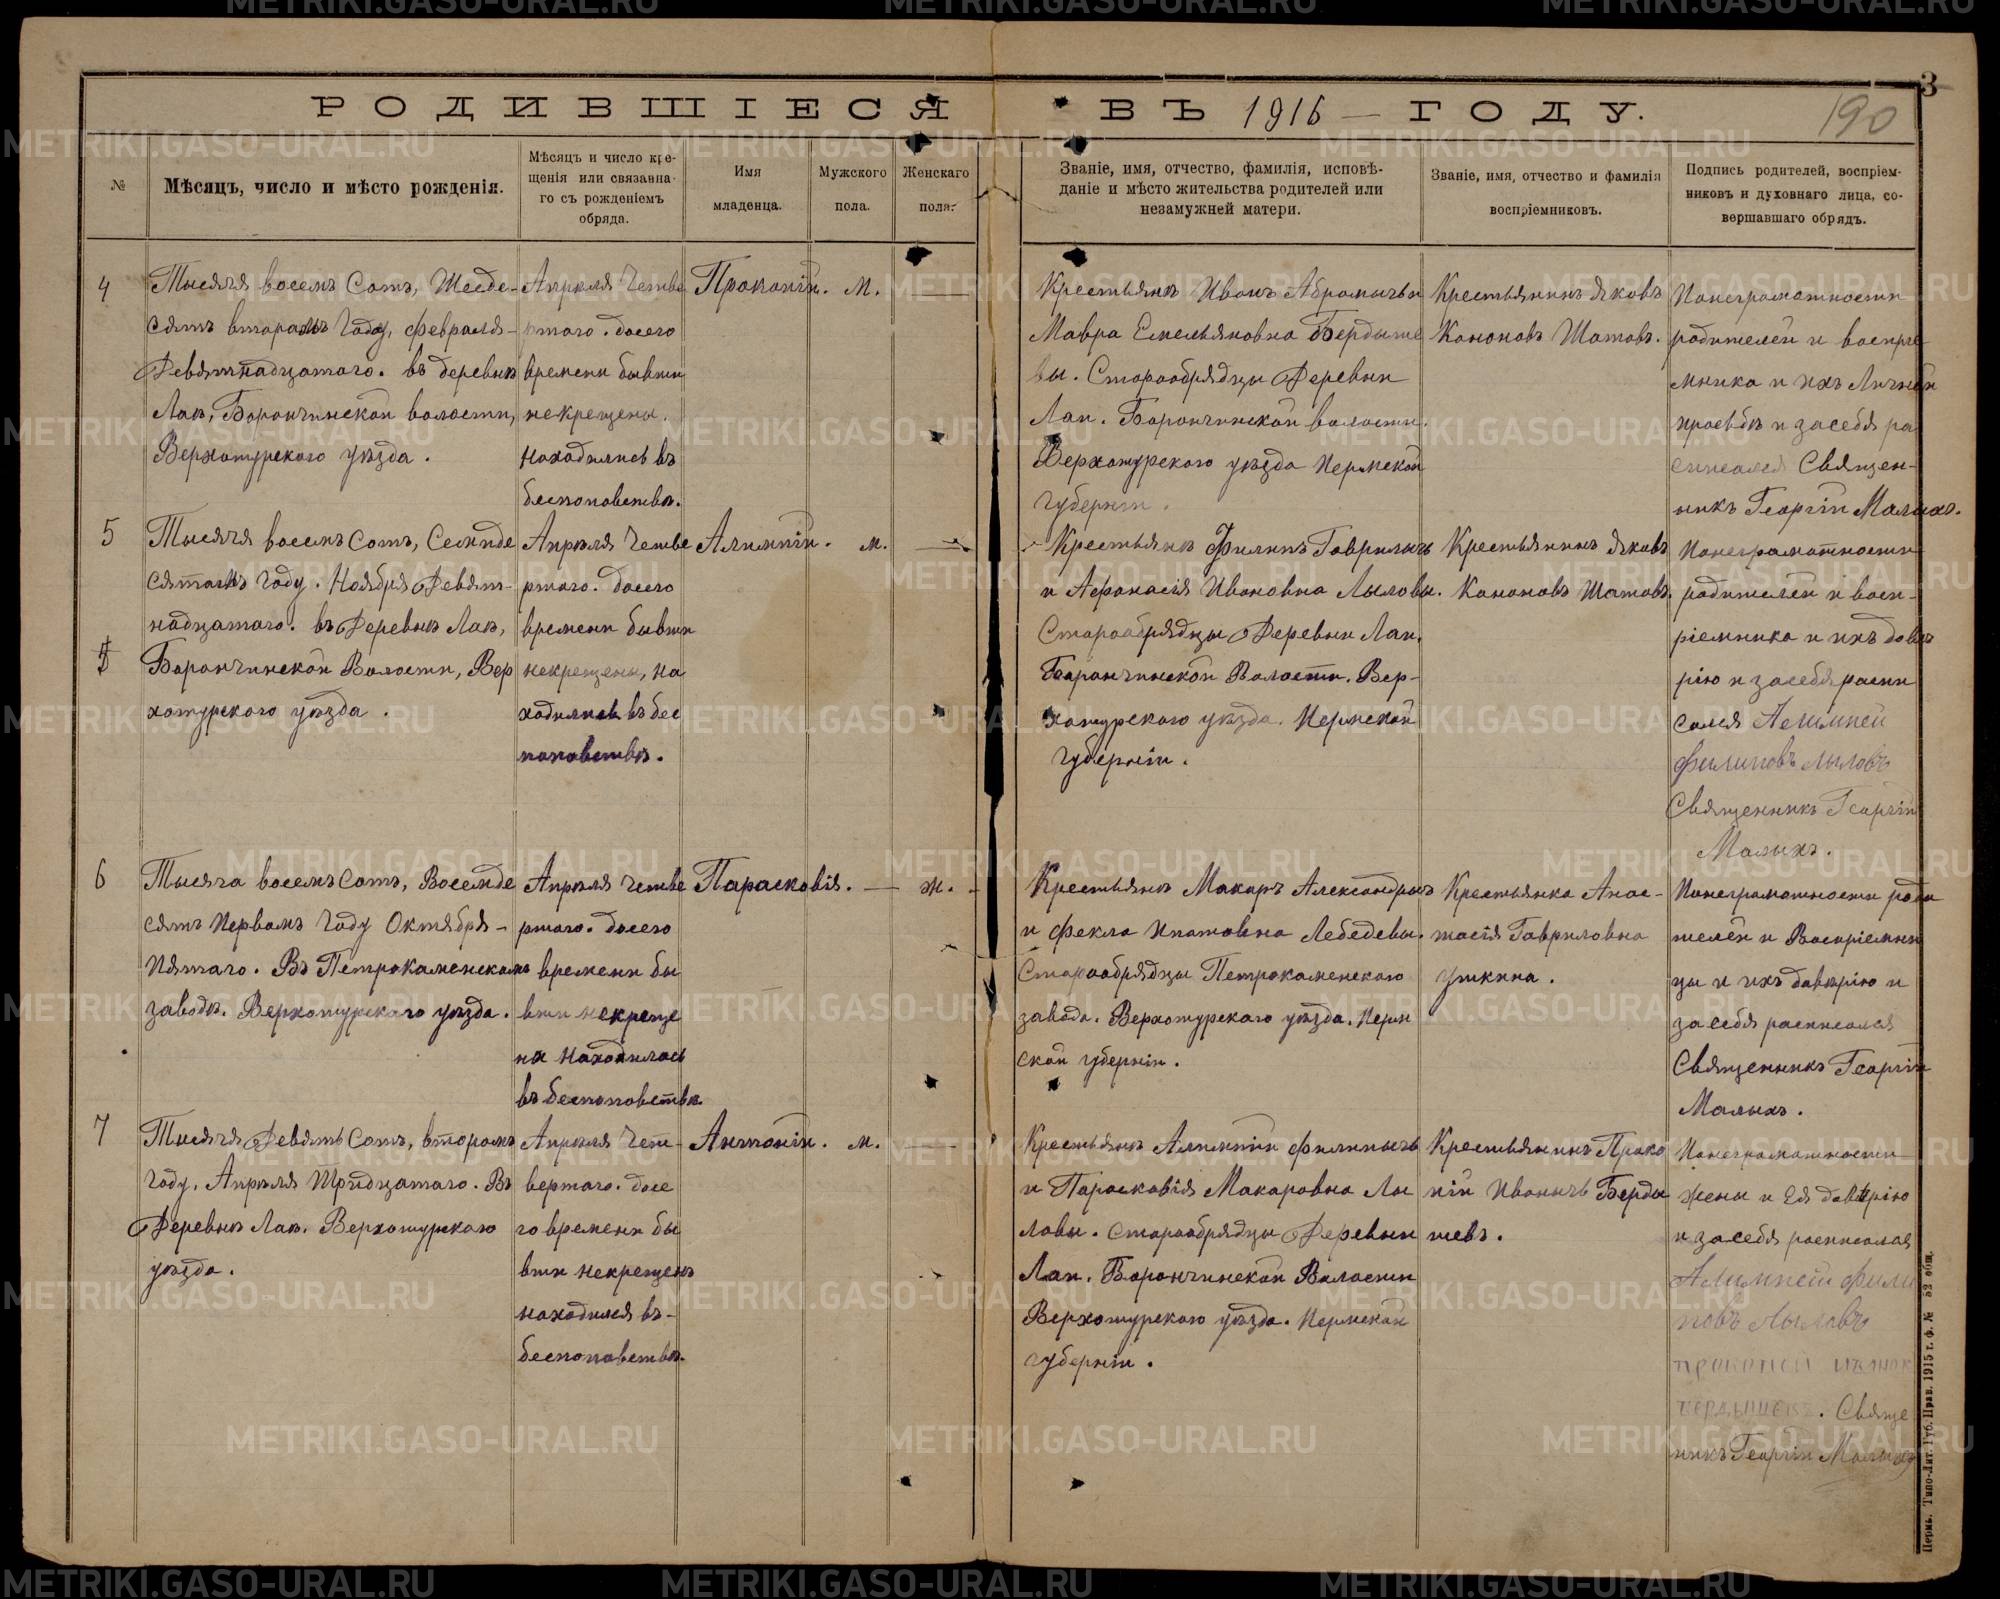 РОДИВШІЕСЯ ВЪ 1916 ГОДУ.
3
190
№
Мѣсяцъ, число и мѣсто рожденія.
Мѣсяцъ и число кре-
щенія или связанна-
го съ рожденіемъ
обряда.
Имя
младенца.
Мужского
пола.
Женскаго
пола.
Званіе, имя, отчество, фамилія, исповѣ-
даніе и мѣсто жительства родителей или
незамужней матери.
Званіе, имя, отчество и фамилія
воспріемниковъ.
Подпись родителей, воспріем-
никовъ и духовнаго лица, со-
вершавшаго обрядъ.
4
Тысячя восемъ Сотъ, Шесде-
сятъ второмъ Году, февраля-
Девятнадцатаго. въ деревнѣ
Лаѣ, Баранчинской волости,
Верхотурскаго уѣзда.
Апрѣля Четве
ртаго. досего
времени бывши
некрещены.
Находились въ
беспоповствѣ.
Прокопій.
м.
Крестьянѣ Иванъ Абрамычъ и
Мавра Емельяновна Бердыше
вы. Старообрядцы Деревни
Лаи. Баранчинской волости.
Верхотурскаго уѣзда Пермской
губерніи.
Крестьянинъ Яковъ
Канановъ Шатовъ.
Понеграмотности
родителей и воспрiе
мника и ихъ Личной
просьбѣ и засебя ра
списался Священ-
никъ Георгій Малыхъ.
5
Тысячя восемъ Сотъ, Семиде
сятомъ Году. Ноября Девят-
надцатаго. въ Деревнѣ Лаѣ,
Баранчинской Волости, Вер
хотурскаго уѣзда.
Апрѣля Четве
ртаго. досего
времени бывши
некрещены, на
ходились въ бес
поповствѣ.
Алимпій.
м.
Крестьянѣ Филипъ Гаврилычъ
и Афанасія Ивановна Лыловы.
Старообрядцы Деревни Лаи.
Баранчинской Волости. Вер-
хотурскаго уѣзда. Пермской
губерніи.
Крестьянинъ Яковъ
Канановъ Шатовъ.
Понеграмотности
родителей и восп-
ріемника и ихъ довѣ
рію и засебя распи
сался Алимпей
Филиповъ Лыловъ
Священникъ Георгій
Малыхъ.
6
Тысяча восемъ Сотъ, Восемде
сятъ Первомъ Году Октября-
Пятаго. Въ Петрокаменскомъ
заводѣ. Верхотурскаго уѣзда.
Апрѣля Четве
ртаго. досего
времени бы
вши некреще
на Находилась
въ беспоповствѣ.
Парасковія.
ж.
Крестьянѣ Макаръ Александрычъ
и Фекла Ипатовна Лебедевы.
Старообрядцы Петрокаменскаго
завода. Верхотурскаго уѣзда. Перм
ской губерніи.
Крестьянка Анас-
тасія Гавриловна
ушкина.
Понеграмотности роди
телей и Воспріемни
цы и ихъ довѣрію и
засебя расписался
Священникъ Георгій
Малыхъ.
7
Тысячя Девять Сотъ, второмъ
Году, Апрѣля Тридцатаго. Въ
Деревнѣ Лаѣ. Верхотурскаго
уѣзда.
Апрѣля Чет-
вертаго. досе
го времени бы
вши некрещенъ
находился въ-
беспоповствѣ.
Антоній.
м.
Крестьянѣ Алимпій Филипычъ
и Парасковія Макаровна Лы
ловы. Старообрядцы Деревни
Лаи. Баранчинской Волости
Верхотурскаго уѣзда. Пермской
губерніи.
Крестьянинъ Проко
пій Иванычъ Берды
шевъ.
Понеграмотности
жены и Ея довѣрію
и засебя расписался
Алимпей Фили
повъ Лыловъ
прокопей
бердышевъ. Свяще
никъ Георгій Малыхъ
Пермь. Типо-Лит. Губ. Прав. 1915 г. Ф. № 52 общ.
METRIKI.GASO-URAL.RU